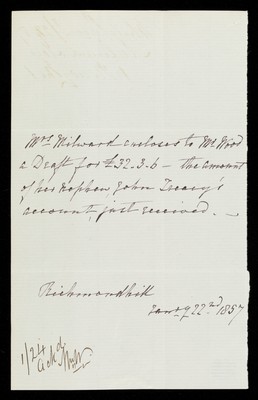 Mrs Milward encloses to Mr Wood
a Draft for £32-3-6 - the amount
of her Nephew, John Treacy's
account, just received. -
Richmondhill
Jany 22nd 1857
1/24
ackd